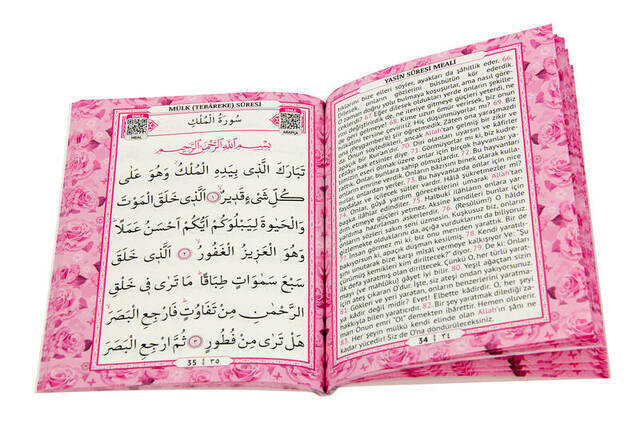 MÜLK (TEBÂREKE) SÛRESİ
سُورَةُ الْمُلْكِ
MEAL
بِسْمِ اللّٰهِ الرَّحْمٰنِ الرَّحِيمِ
تَبَارَكَ الَّذِى بِيَدِهِ الْمُلْكُ وَهُوَ عَلٰى
كُلِّ شَىْءٍ قَدِيرٌ ﴿١﴾ اَلَّذِى خَلَقَ الْمَوْتَ
وَالْحَيٰوةَ لِيَبْلُوَكُمْ اَيُّكُمْ اَحْسَنُ عَمَلًا
وَهُوَ الْعَزِيزُ الْغَفُورُ ﴿٢﴾ اَلَّذِى خَلَقَ
سَبْعَ سَمٰوَاتٍ طِبَاقًا مَا تَرٰى فِى خَلْقِ
الرَّحْمٰنِ مِنْ تَفَاوُتٍ فَارْجِعِ الْبَصَرَ
هَلْ تَرٰى مِنْ فُطُورٍ ﴿٣﴾ ثُمَّ ارْجِعِ الْبَصَرَ
35 ٣٥
YASİN SÛRESİ MEALİ
bize elleri söyler, ayakları da şahitlik eder. 66.
Dileseydik, onların gözlerini büsbütün kör ederdik.
zaman doğru yolu bulmaya koşuşurlar, ama nasıl göre-
ceklerdi? 67. Eğer dileseydik oldukları yerde onların şekille-
rini değiştirirdik de ne ileriye gitmeye güçleri yeterdi, ne
geri gelmeye. 68. Kime uzun ömür verirsek, biz onun
yaratılışını tersine çeviririz. Hiç düşünmüyorlar mı? 69. Biz
ona (Peygambere) şiir öğretmedik. Zaten ona yaraşmazdı
da. Onun söyledikleri, ancak Allah'tan gelmiş bir zikir ve
apaçık bir Kur'an'dır. 70. Diri olanları uyarsın ve kâfirler
cezayı hak etsinler diye. 71. Görmüyorlar mı ki, biz kudre-
timizin eseri olmak üzere onlar için birçok hayvanlar ya-
rattık. Onlar, bunlara sahip olmuşlardır. 72. Bu hayvanları
onların emrine verdik. Onların bazısını binek olarak kulla-
nırlar, bazısını yerler. 73. Bu hayvanlarda onlar için nice
faydalar ve içecekler vardır. Hâlâ şükretmezler mi?
74. Onlar, gûya yardım göreceklerini umarak Allah'tan
başka ilâhlar edindiler. 75. Halbuki onların bunlar için
yardım etmeye güçleri yetmez. Aksine kendileri bunlar için
yardıma hazırlanmış askerlerdir. 76. (Resûlüm!) O hâlde
onların sözleri sakın seni üzmesin. Kuşkusuz biz, onların
gizlemekte olduklarını da, açığa vurduklarını da biliyoruz.
77. İnsan görmez mi ki, biz onu meniden yarattık. Bir de
bakıyorsun ki, apaçık düşman kesilmiş. 78. Kendi yaratılı-
şını unutarak bize karşı misal vermeye kalkışıyor ve "Şu
çürümüş kemikleri kim diriltecek?" diyor. 79. De ki: Onları
ilk defa yaratmış olan diriltecek. Çünkü O, her türlü yarat-
mayı (ve mahlûku) gâyet iyi bilir. 80. Yeşil ağaçtan sizin
için ateş çıkaran O'dur. İşte, siz ateşi ondan yakıyorsunuz.
81. Gökleri ve yeri yaratan, onların benzerlerini yaratma-
ya kâdir değil midir? Evet! Elbette kâdirdir. O, her şeyi
hakkıyla bilen yaratıcıdır. 82. Bir şey yaratmak dilediği za-
man Onun emri "Ol" demekten ibârettir. Hemen oluverir.
83. Her şeyin mülkü kendi elinde olan Allah'ın şânı ne
kadar yücedir! Siz de O'na döndürüleceksiniz.
34 ٣٤